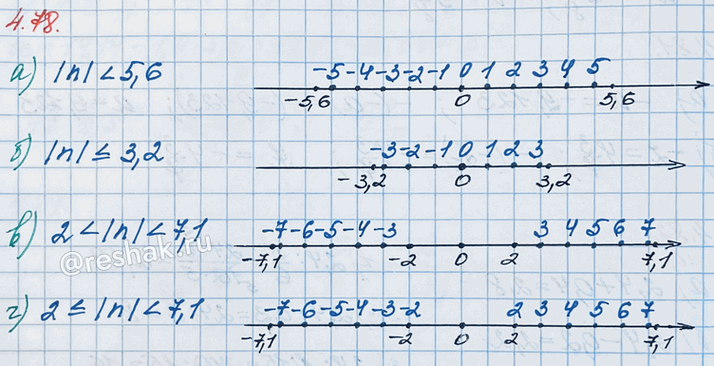 4.78.
а) |n| < 5,6 -5 -4 -3 -2 -1 0 1 2 3 4 5
-5,6 0 5,6
б) |n| ≤ 3,2 -3 -2 -1 0 1 2 3
-3,2 0 3,2
в) 2 < |n| < 7,1 -7 -6 -5 -4 -3 3 4 5 6 7
-7,1 -2 0 2 7,1
@reshak.ru
г) 2 ≤ |n| < 7,1 -7 -6 -5 -4 -3 -2 2 3 4 5 6 7
-7,1 -2 0 2 7,1